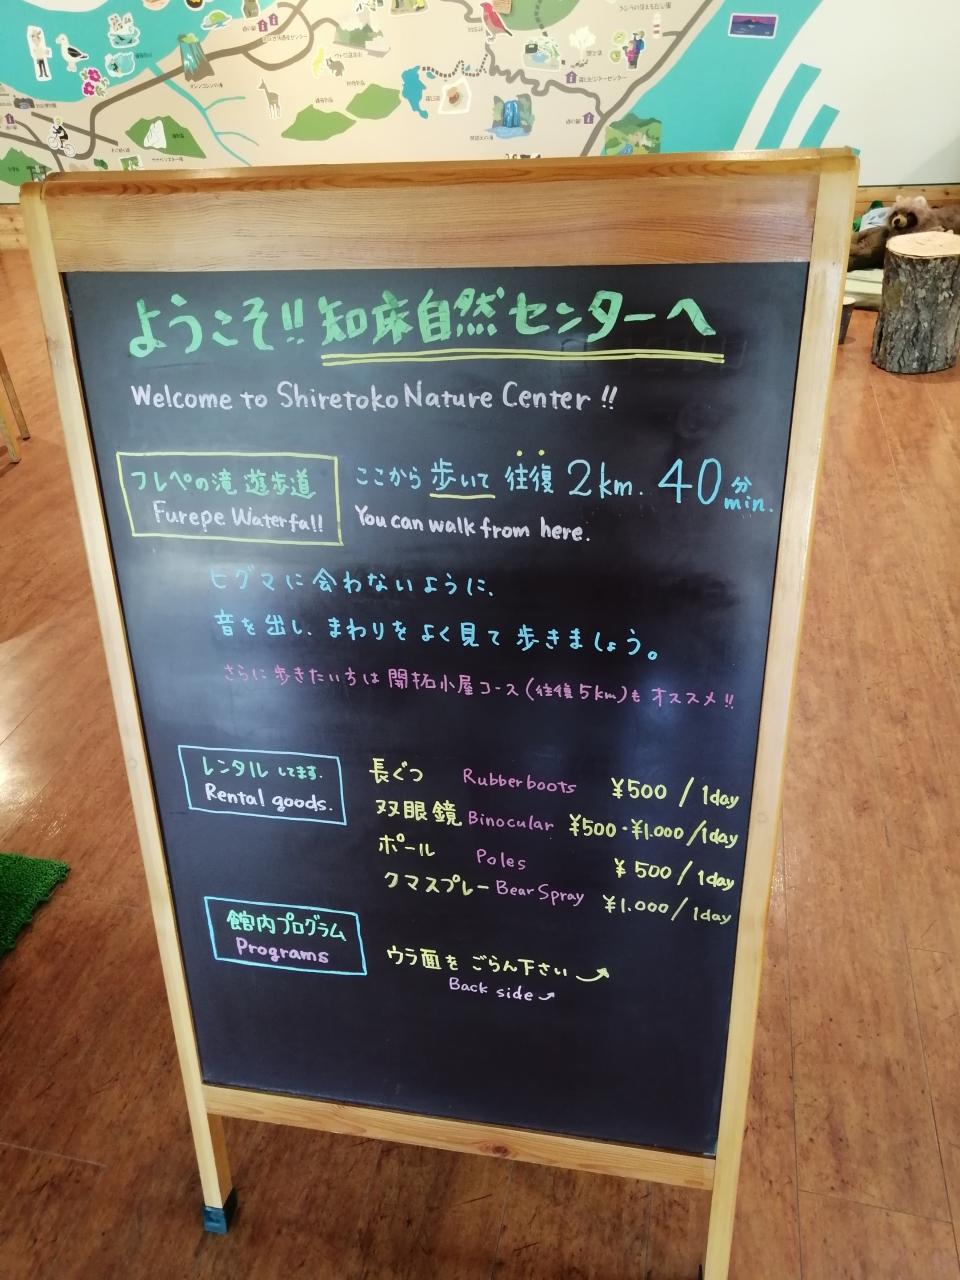 ようこそ!! 知床自然センターへ
Welcome to Shiretoko Nature Center !!
フレペの滝 遊歩道
Furepe Waterfall
ここから 歩いて 往復 2km. 40分 min.
You can walk from here.
ヒグマに会わないように、
音を出し、まわりをよく見て歩きましょう。
さらに歩きたい方は開拓小屋コース(往復5km)もオススメ!!
レンタルしてます.
Rental goods.
長ぐつ Rubber boots ¥500 / 1day
双眼鏡 Binocular ¥500・¥1.000 / 1day
ポール Poles ¥500 / 1day
クマスプレー Bear Spray ¥1.000 / 1day
館内プログラム
Programs
ウラ面をごらん下さい
Back side